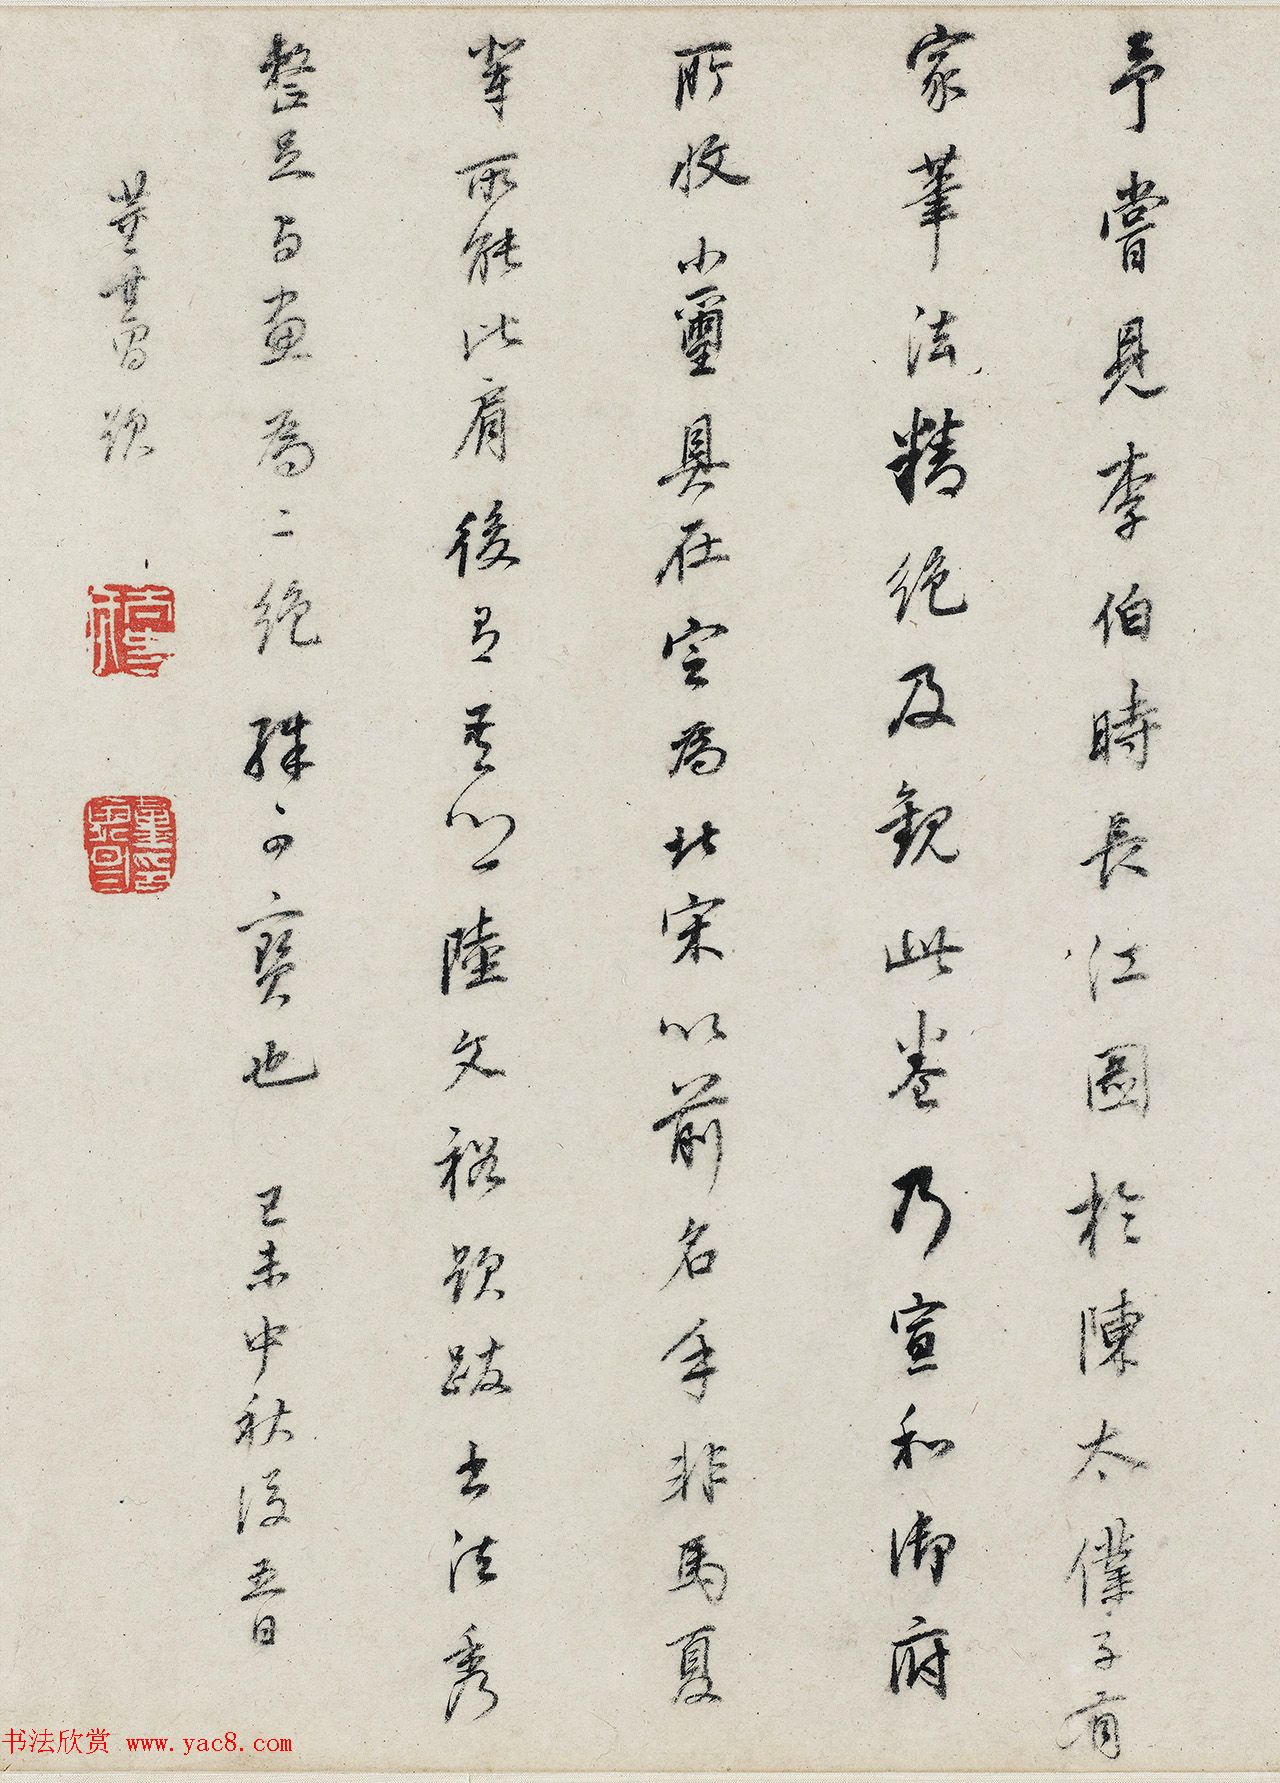 予嘗見李伯時長江圖於陳太僕子有
家筆法精絕及觀此卷乃宣和御府
所收小璽具在定為北宋以前名手非馬夏
輩所能比肩後有吾鄉陸文裕題跋書法秀
整足與畫為二絕殊可寶也 己未中秋後五日
董其昌題
书法欣赏 www.yac8.com